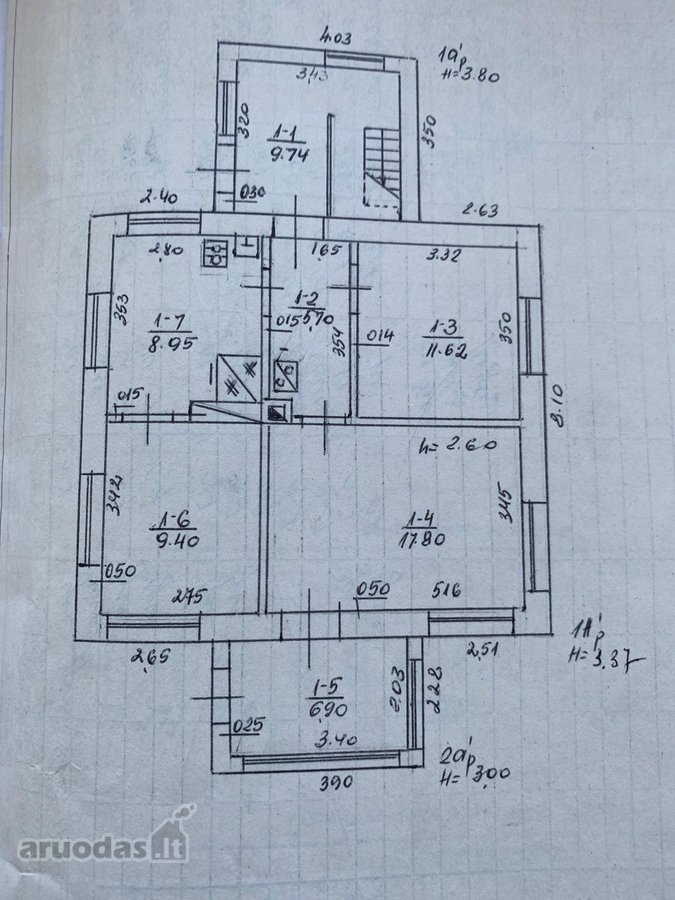 4.03
1a'p
H=3.80
3,43
320
1-1
9.74
350
030
2.40
2.63
2,80
1,65
3.32
353
1-7
8.95
1-2
5,70
015
354
014
1-3
11.62
350
8.10
015
h=2.60
342
1-6
9.40
1-4
17.80
345
050
275
050
516
2.65
2,51
1A'p
H=3.37
1-5
6,90
2.03
228
025
3.40
390
2a'p
H=3,00
aruodas.lt